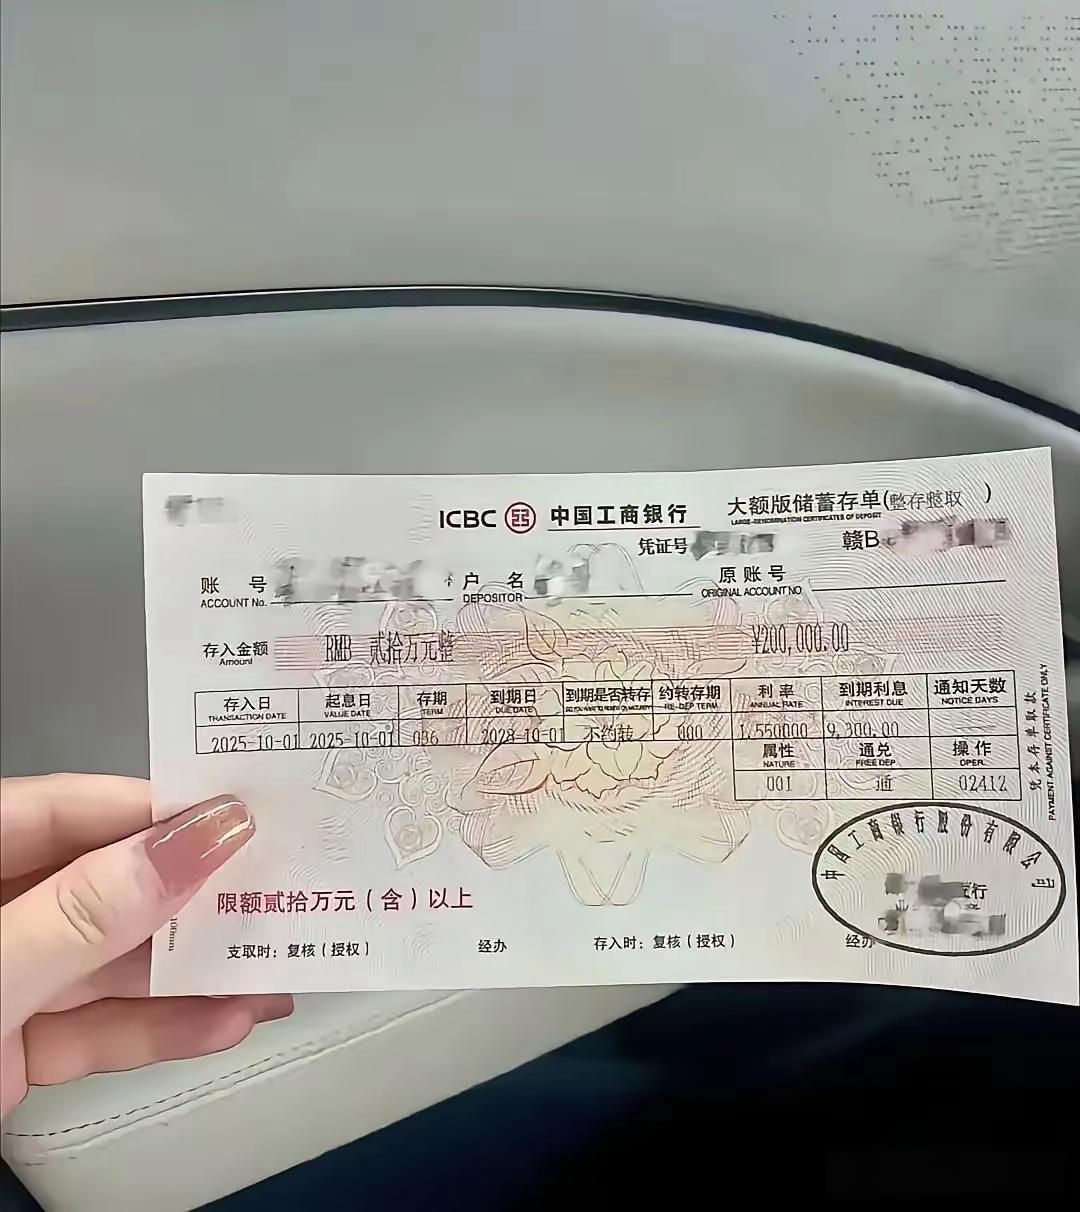 ICBC 中国工商银行 大额版储蓄存单(整存整取 )
LARGE-DENOMINATION CERTIFICATES OF DEPOSIT
凭证号 赣B
账 号 户 名 原账号
ACCOUNT No. DEPOSITOR ORIGINAL ACCOUNT NO.
存入金额 RMB 贰拾万元整 ¥200,000.00
Amount
存入日 起息日 存期 到期日 到期是否转存 约转存期 利率 到期利息 通知天数
TRANSACTION DATE VALUE DATE TERM DUE DATE RE-DEP TERM ANNUAL RATE INTEREST DUE NOTICE DAYS
2025-10-01 2025-10-01 036 2028-10-01 不约转 000 1.550000 9,300.00
属性 通兑 操作
NATURE FREE DEP OPER.
001 通 02412
凭本存单取款
PAYMENT AGAINST CERTIFICATE ONLY
中国工商银行股份有限公司
支行
限额贰拾万元（含）以上
支取时：复核（授权） 经办 存入时：复核（授权） 经办